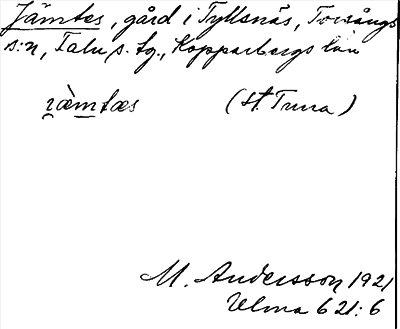 Jämtes, gård i Tyllsnäs, Torsångs
s:n, Falu s. tg., Kopparbergs län
jæ̀mtæs (St. Tuna)
M. Andersson 1921
Ulma 621:6